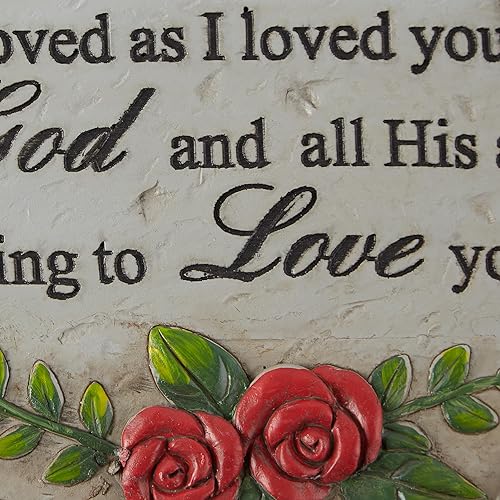 oved as I loved you
God and all His a
ing to Love yo